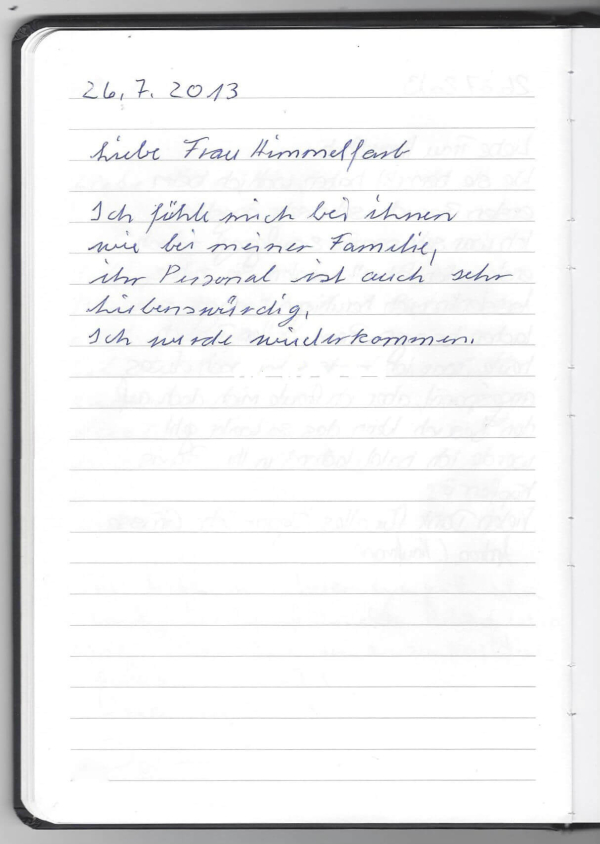 26.7.2013
Liebe Frau Himmelfarb
Ich fühle mich bei ihnen
wie bei meiner Familie,
ihr Personal ist auch sehr
liebenswürdig,
Ich werde wiederkommen.